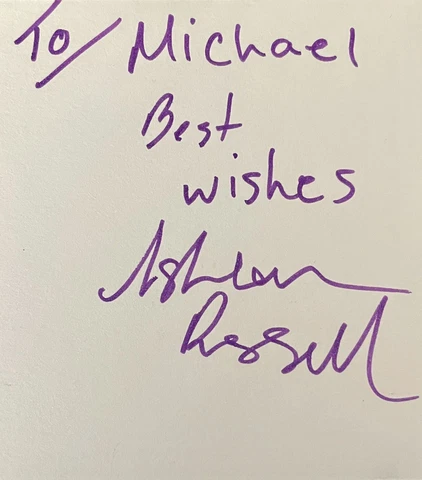 To/ Michael
Best
wishes
Ashleen
Russell